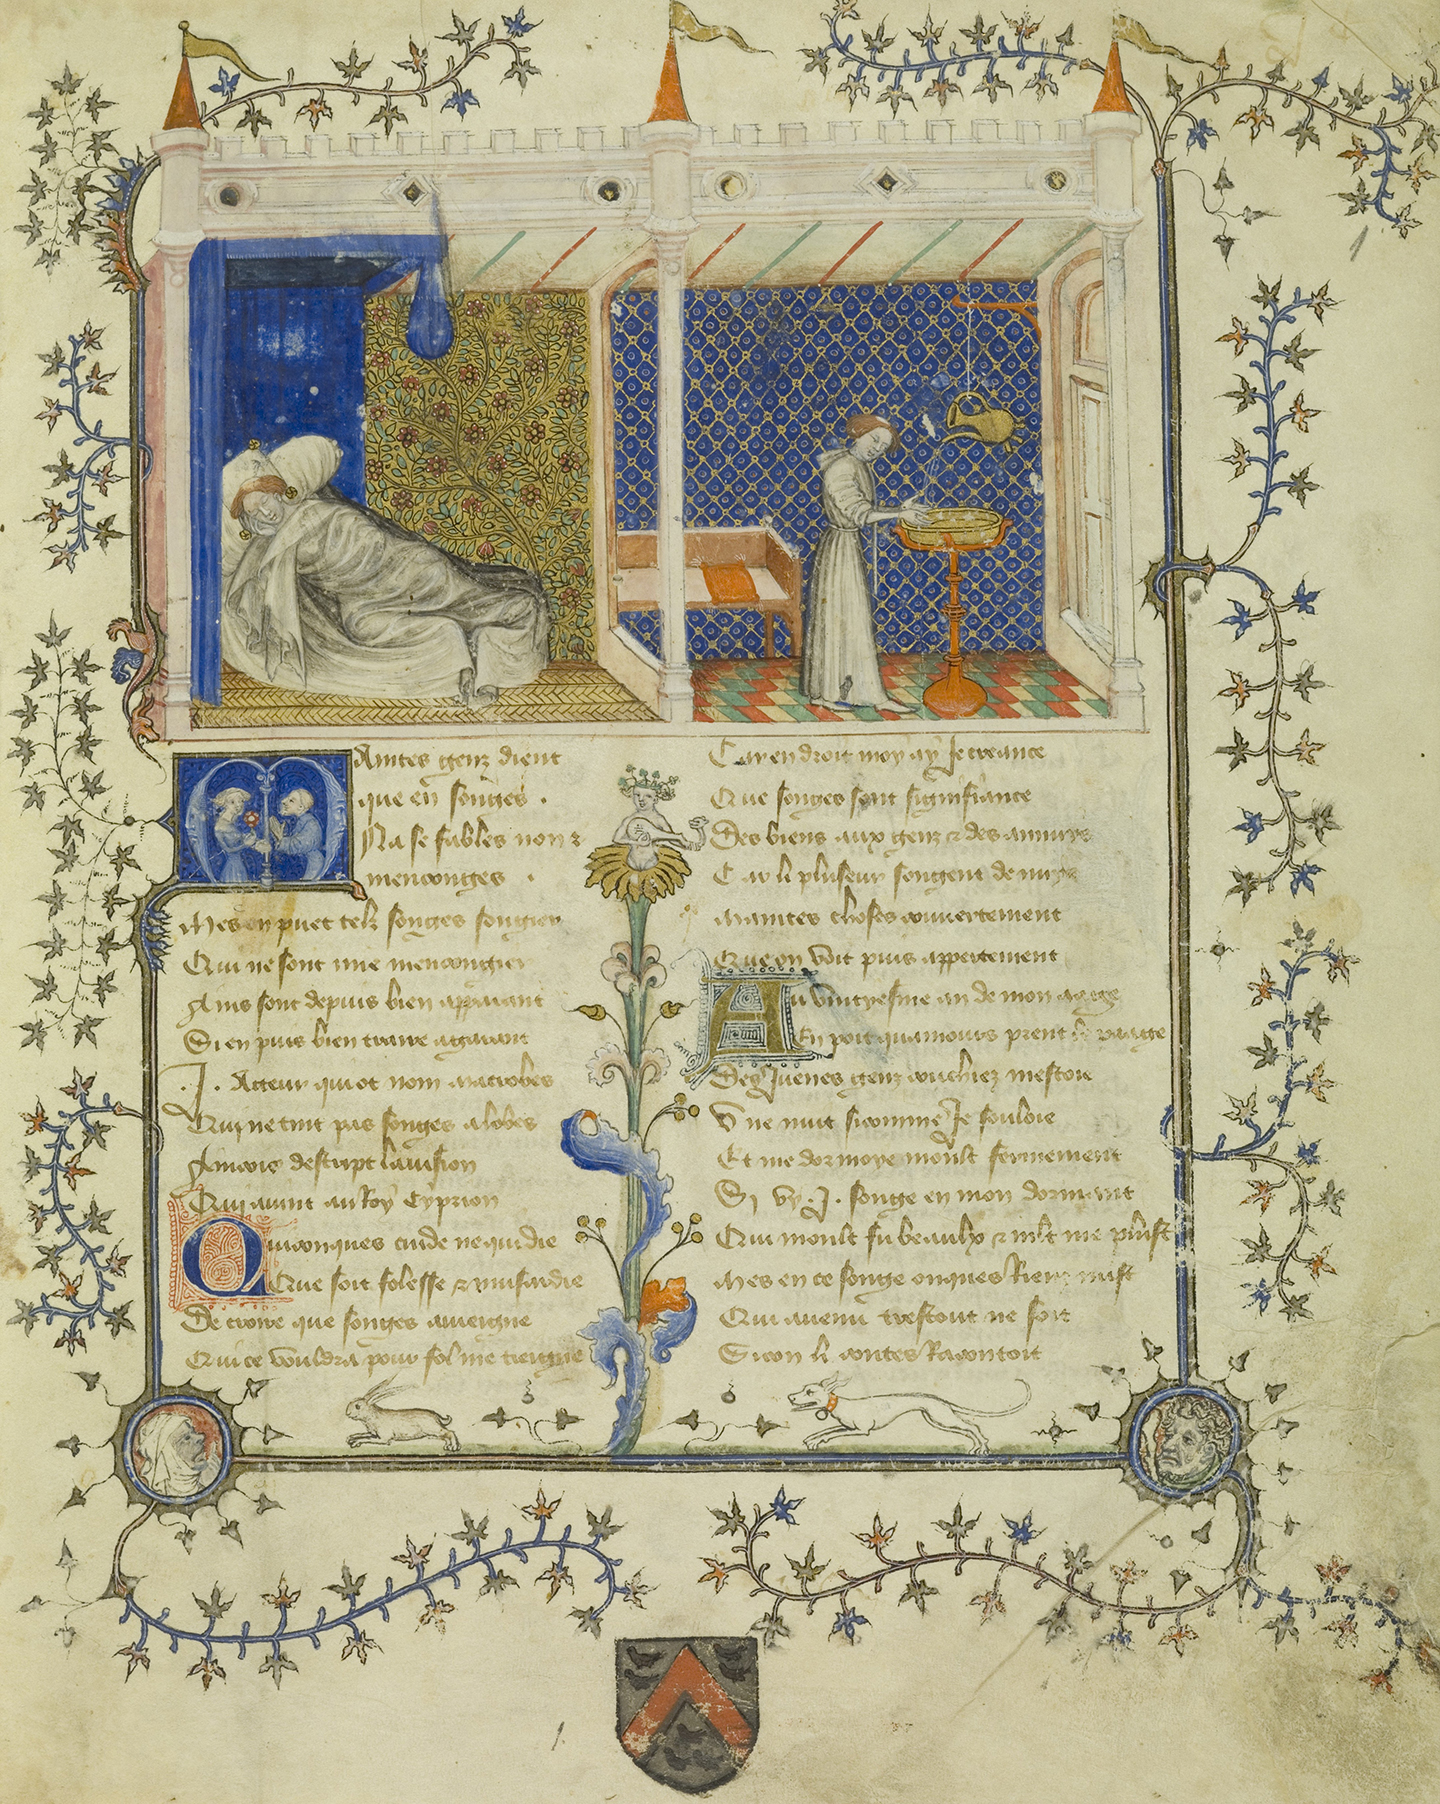 Maintes genz dient
que en songes
Na se fables non
menconges
Mes en puet telz songes songier
Qui ne sont mie mencongier
Ains sont depuis bien apparant
Si en puis bien traire a garant
.J. Acteur qui ot nom macrobes
Qui ne tint pas songes a lobes
Aincois descript lavision
Qui avint au Roy Cyprion
Quiconques cuide ne qui die
Que soit folesse & musardie
De croire que songes aviengne
Qui ce vouldra pour fol me tiengne
Car en droit moy ay Je creance
Que songes sont signifiance
Des biens aux genz & des annuys
Car li pluseur songent de nuys
Maintes choses couvertement
Que on voit puis appertement
Au vintyesme an de mon aage
En point quamours prent le paage
Des Juenes genz couchiez mestoie
Une nuit sicomme Je souloie
Et me dormoye moult forment
Si vy .J. songe en mon dormant
Qui moult fu beaulx & mlt me plust
Mes en ce songe onques Riens nust
Qui avenu trestout ne soit
Sicon li contes Racontoit